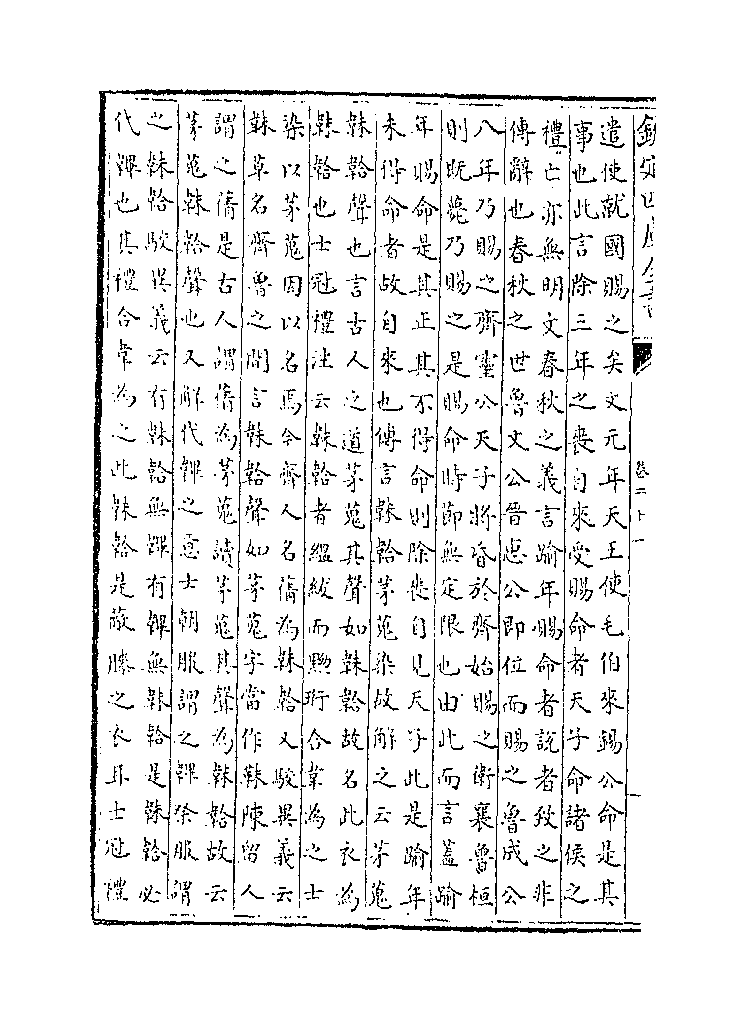 欽定四庫全書
卷二十一
遣使就國賜之矣文元年天王使毛伯來錫公命是其
事也此言除三年之喪自來受賜命者天子命諸侯之
禮亡亦無明文春秋之義言踰年賜命者說者致之非
傳辭也春秋之世魯文公晉惠公即位而賜之魯成公
八年乃賜之齊靈公天子將昏於齊始賜之衛襄魯桓
則既薨乃賜之是賜命時節無定限也由此而言蓋踰
年賜命是其正其不得命則除喪自見天子此是踰年
未得命者故自來也傳言韎韐茅蒐染故解之云茅蒐
韎韐聲也言古人之道茅蒐其聲如韎韐故名此衣為
韎韐也士冠禮注云韎韐者縕紱而黝珩合韋為之士
染以茅蒐因以名焉今齊人名蒨為韎韐又駮異義云
韎草名齊魯之間言韎韐聲如茅蒐字當作韎陳留人
謂之蒨是古人謂蒨為茅蒐讀茅蒐其聲為韎韐故云
茅蒐韎韐聲也又解代韠之意士朝服謂之韠祭服謂
之韎韐駮異義云有韎韐無韠有韠無韎韐是韎韐必
代韠也其禮合韋為之此韎韐是蔽膝之衣耳士冠禮